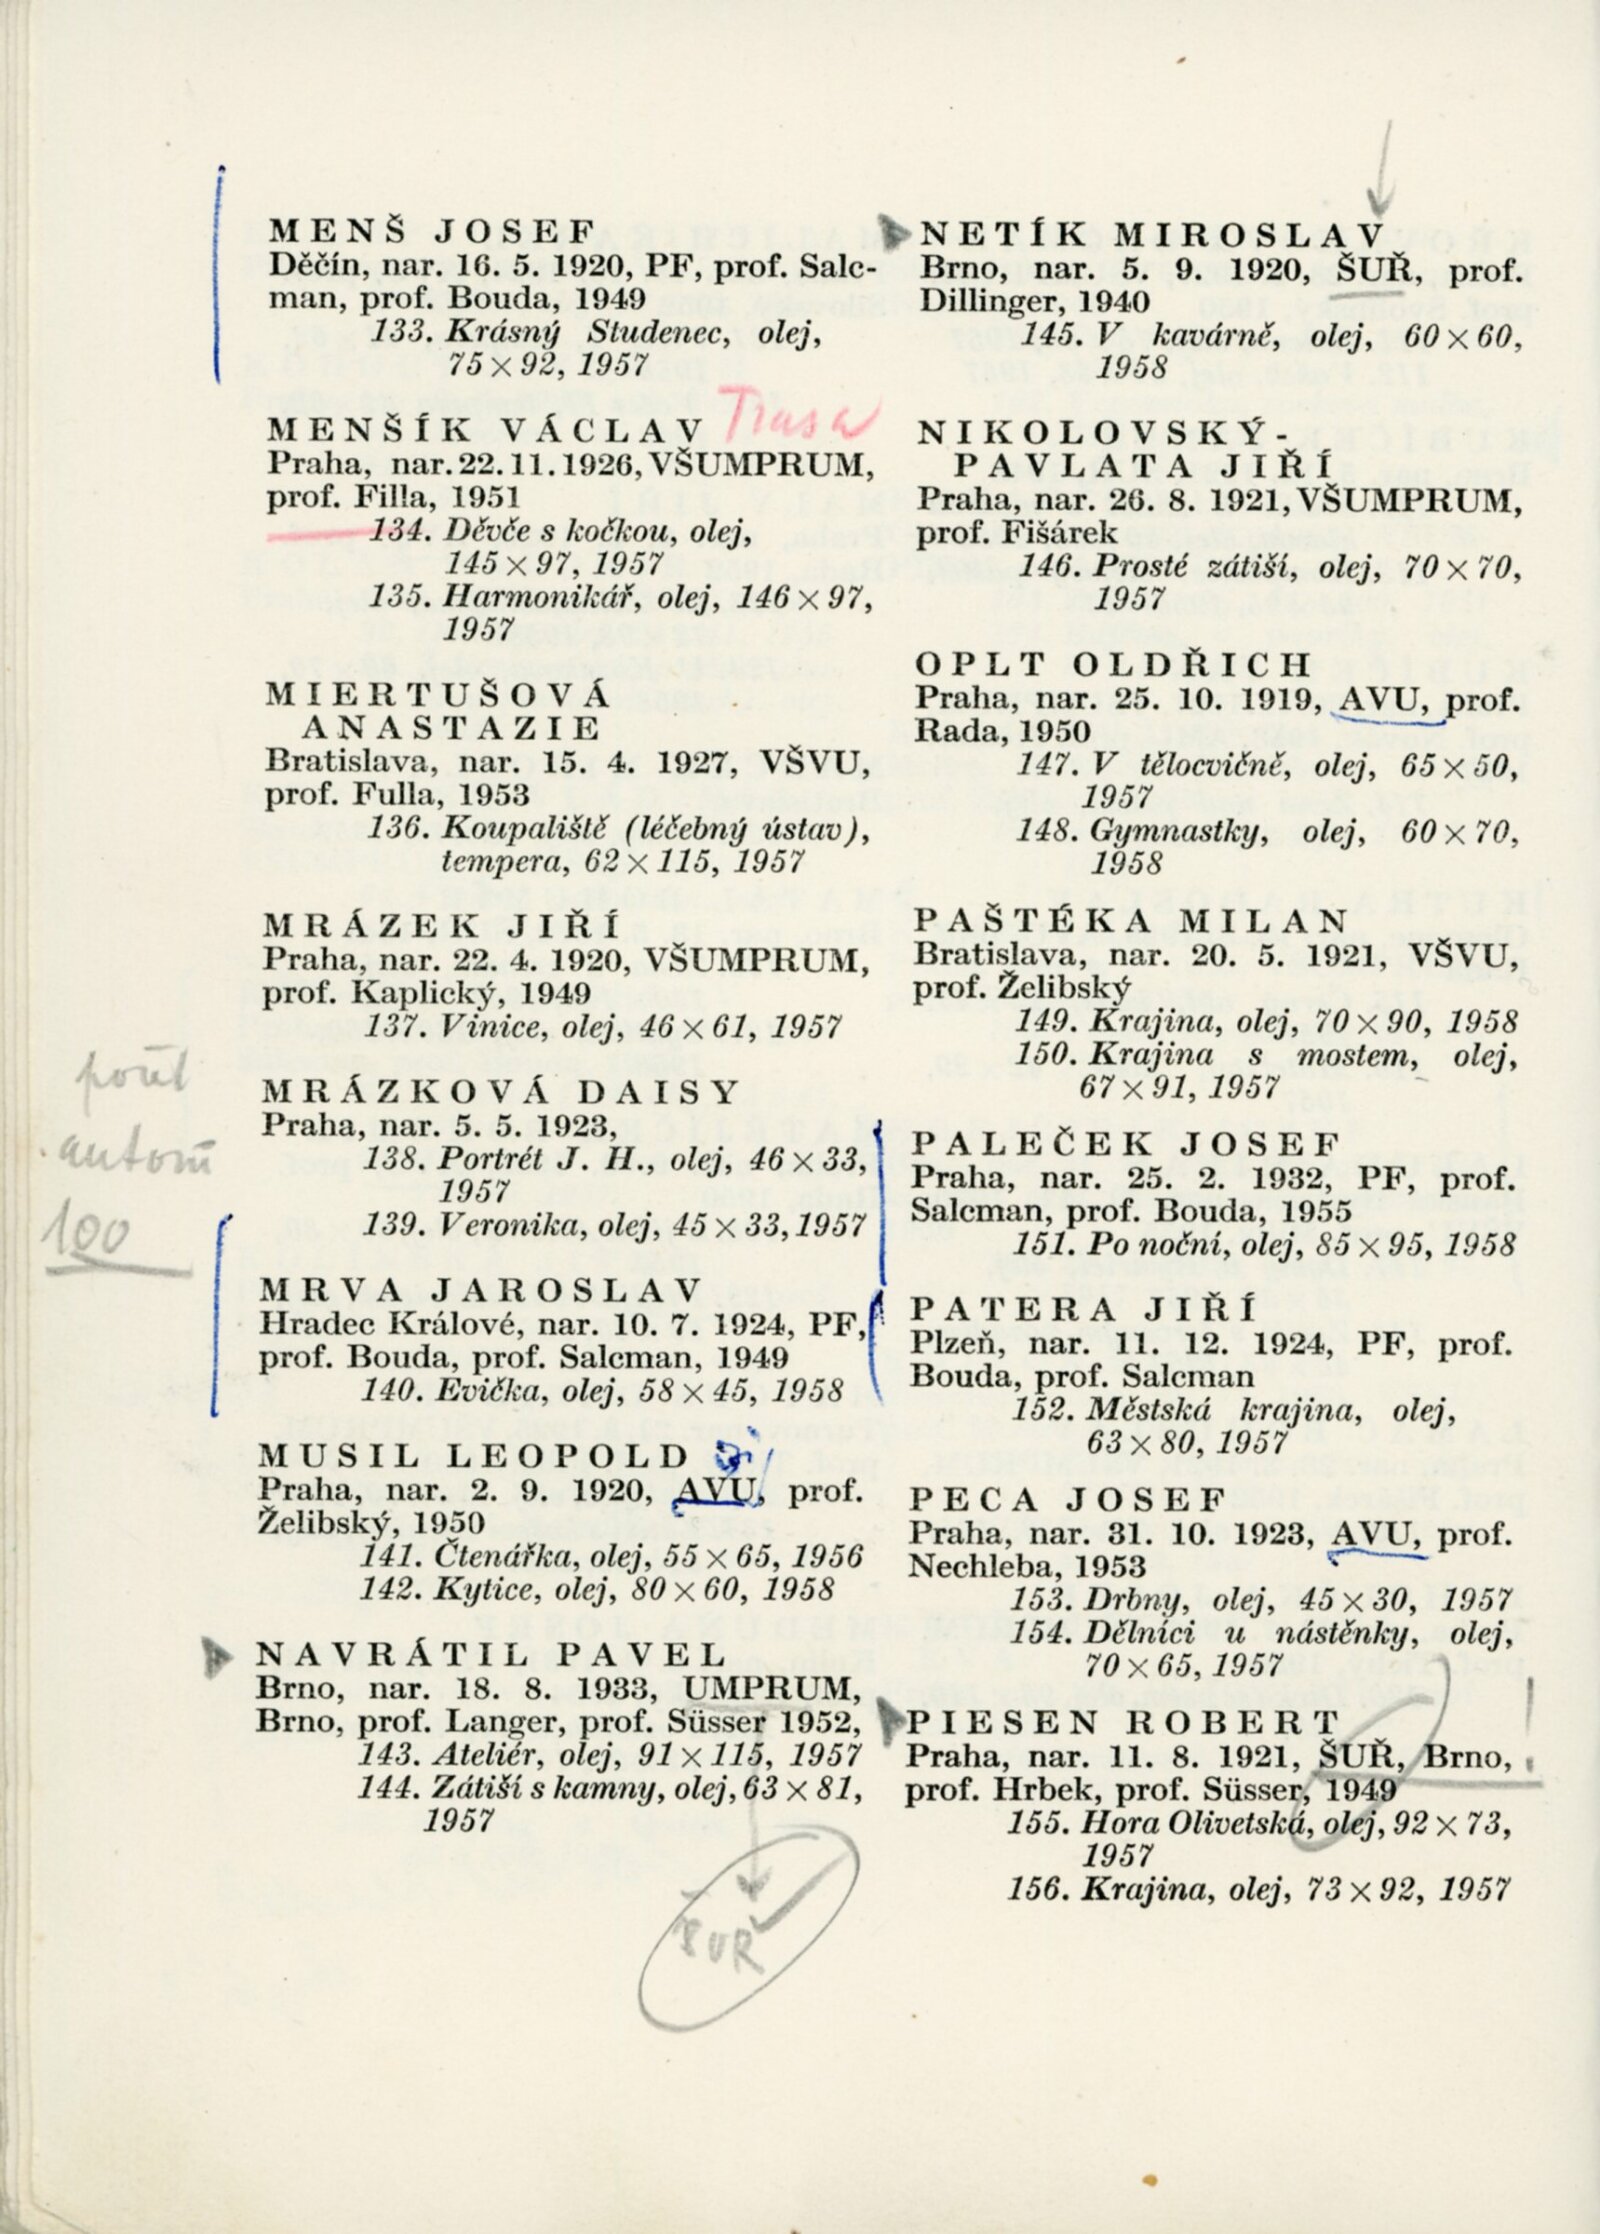 MENŠ JOSEF
Děčín, nar. 16. 5. 1920, PF, prof. Salc-
man, prof. Bouda, 1949
133. Krásný Studenec, olej,
75 × 92, 1957
MENŠÍK VÁCLAV Trasa
Praha, nar. 22. 11. 1926, VŠUMPRUM,
prof. Filla, 1951
134. Děvče s kočkou, olej,
145 × 97, 1957
135. Harmonikář, olej, 146 × 97,
1957
MIERTUŠOVÁ
ANASTAZIE
Bratislava, nar. 15. 4. 1927, VŠVU,
prof. Fulla, 1953
136. Koupaliště (léčebný ústav),
tempera, 62 × 115, 1957
MRÁZEK JIŘÍ
Praha, nar. 22. 4. 1920, VŠUMPRUM,
prof. Kaplický, 1949
137. Vinice, olej, 46 × 61, 1957
MRÁZKOVÁ DAISY
Praha, nar. 5. 5. 1923,
138. Portrét J. H., olej, 46 × 33,
1957
139. Veronika, olej, 45 × 33, 1957
autorů
100
MRVA JAROSLAV
Hradec Králové, nar. 10. 7. 1924, PF,
prof. Bouda, prof. Salcman, 1949
140. Evička, olej, 58 × 45, 1958
MUSIL LEOPOLD
Praha, nar. 2. 9. 1920, AVU, prof.
Želibský, 1950
141. Čtenářka, olej, 55 × 65, 1956
142. Kytice, olej, 80 × 60, 1958
NAVRÁTIL PAVEL
Brno, nar. 18. 8. 1933, UMPRUM,
Brno, prof. Langer, prof. Süsser 1952,
143. Ateliér, olej, 91 × 115, 1957
144. Zátiší s kamny, olej, 63 × 81,
1957
ŠUŘ
NETÍK MIROSLAV
Brno, nar. 5. 9. 1920, ŠUŘ, prof.
Dillinger, 1940
145. V kavárně, olej, 60 × 60,
1958
NIKOLOVSKÝ-
PAVLATA JIŘÍ
Praha, nar. 26. 8. 1921, VŠUMPRUM,
prof. Fišárek
146. Prosté zátiší, olej, 70 × 70,
1957
OPLT OLDŘICH
Praha, nar. 25. 10. 1919, AVU, prof.
Rada, 1950
147. V tělocvičně, olej, 65 × 50,
1957
148. Gymnastky, olej, 60 × 70,
1958
PAŠTÉKA MILAN
Bratislava, nar. 20. 5. 1921, VŠVU,
prof. Želibský
149. Krajina, olej, 70 × 90, 1958
150. Krajina s mostem, olej,
67 × 91, 1957
PALEČEK JOSEF
Praha, nar. 25. 2. 1932, PF, prof.
Salcman, prof. Bouda, 1955
151. Po noční, olej, 85 × 95, 1958
PATERA JIŘÍ
Plzeň, nar. 11. 12. 1924, PF, prof.
Bouda, prof. Salcman
152. Městská krajina, olej,
63 × 80, 1957
PECA JOSEF
Praha, nar. 31. 10. 1923, AVU, prof.
Nechleba, 1953
153. Drbny, olej, 45 × 30, 1957
154. Dělníci u nástěnky, olej,
70 × 65, 1957
PIESEN ROBERT
Praha, nar. 11. 8. 1921, ŠUŘ, Brno, !
prof. Hrbek, prof. Süsser, 1949
155. Hora Olivetská, olej, 92 × 73,
1957
156. Krajina, olej, 73 × 92, 1957